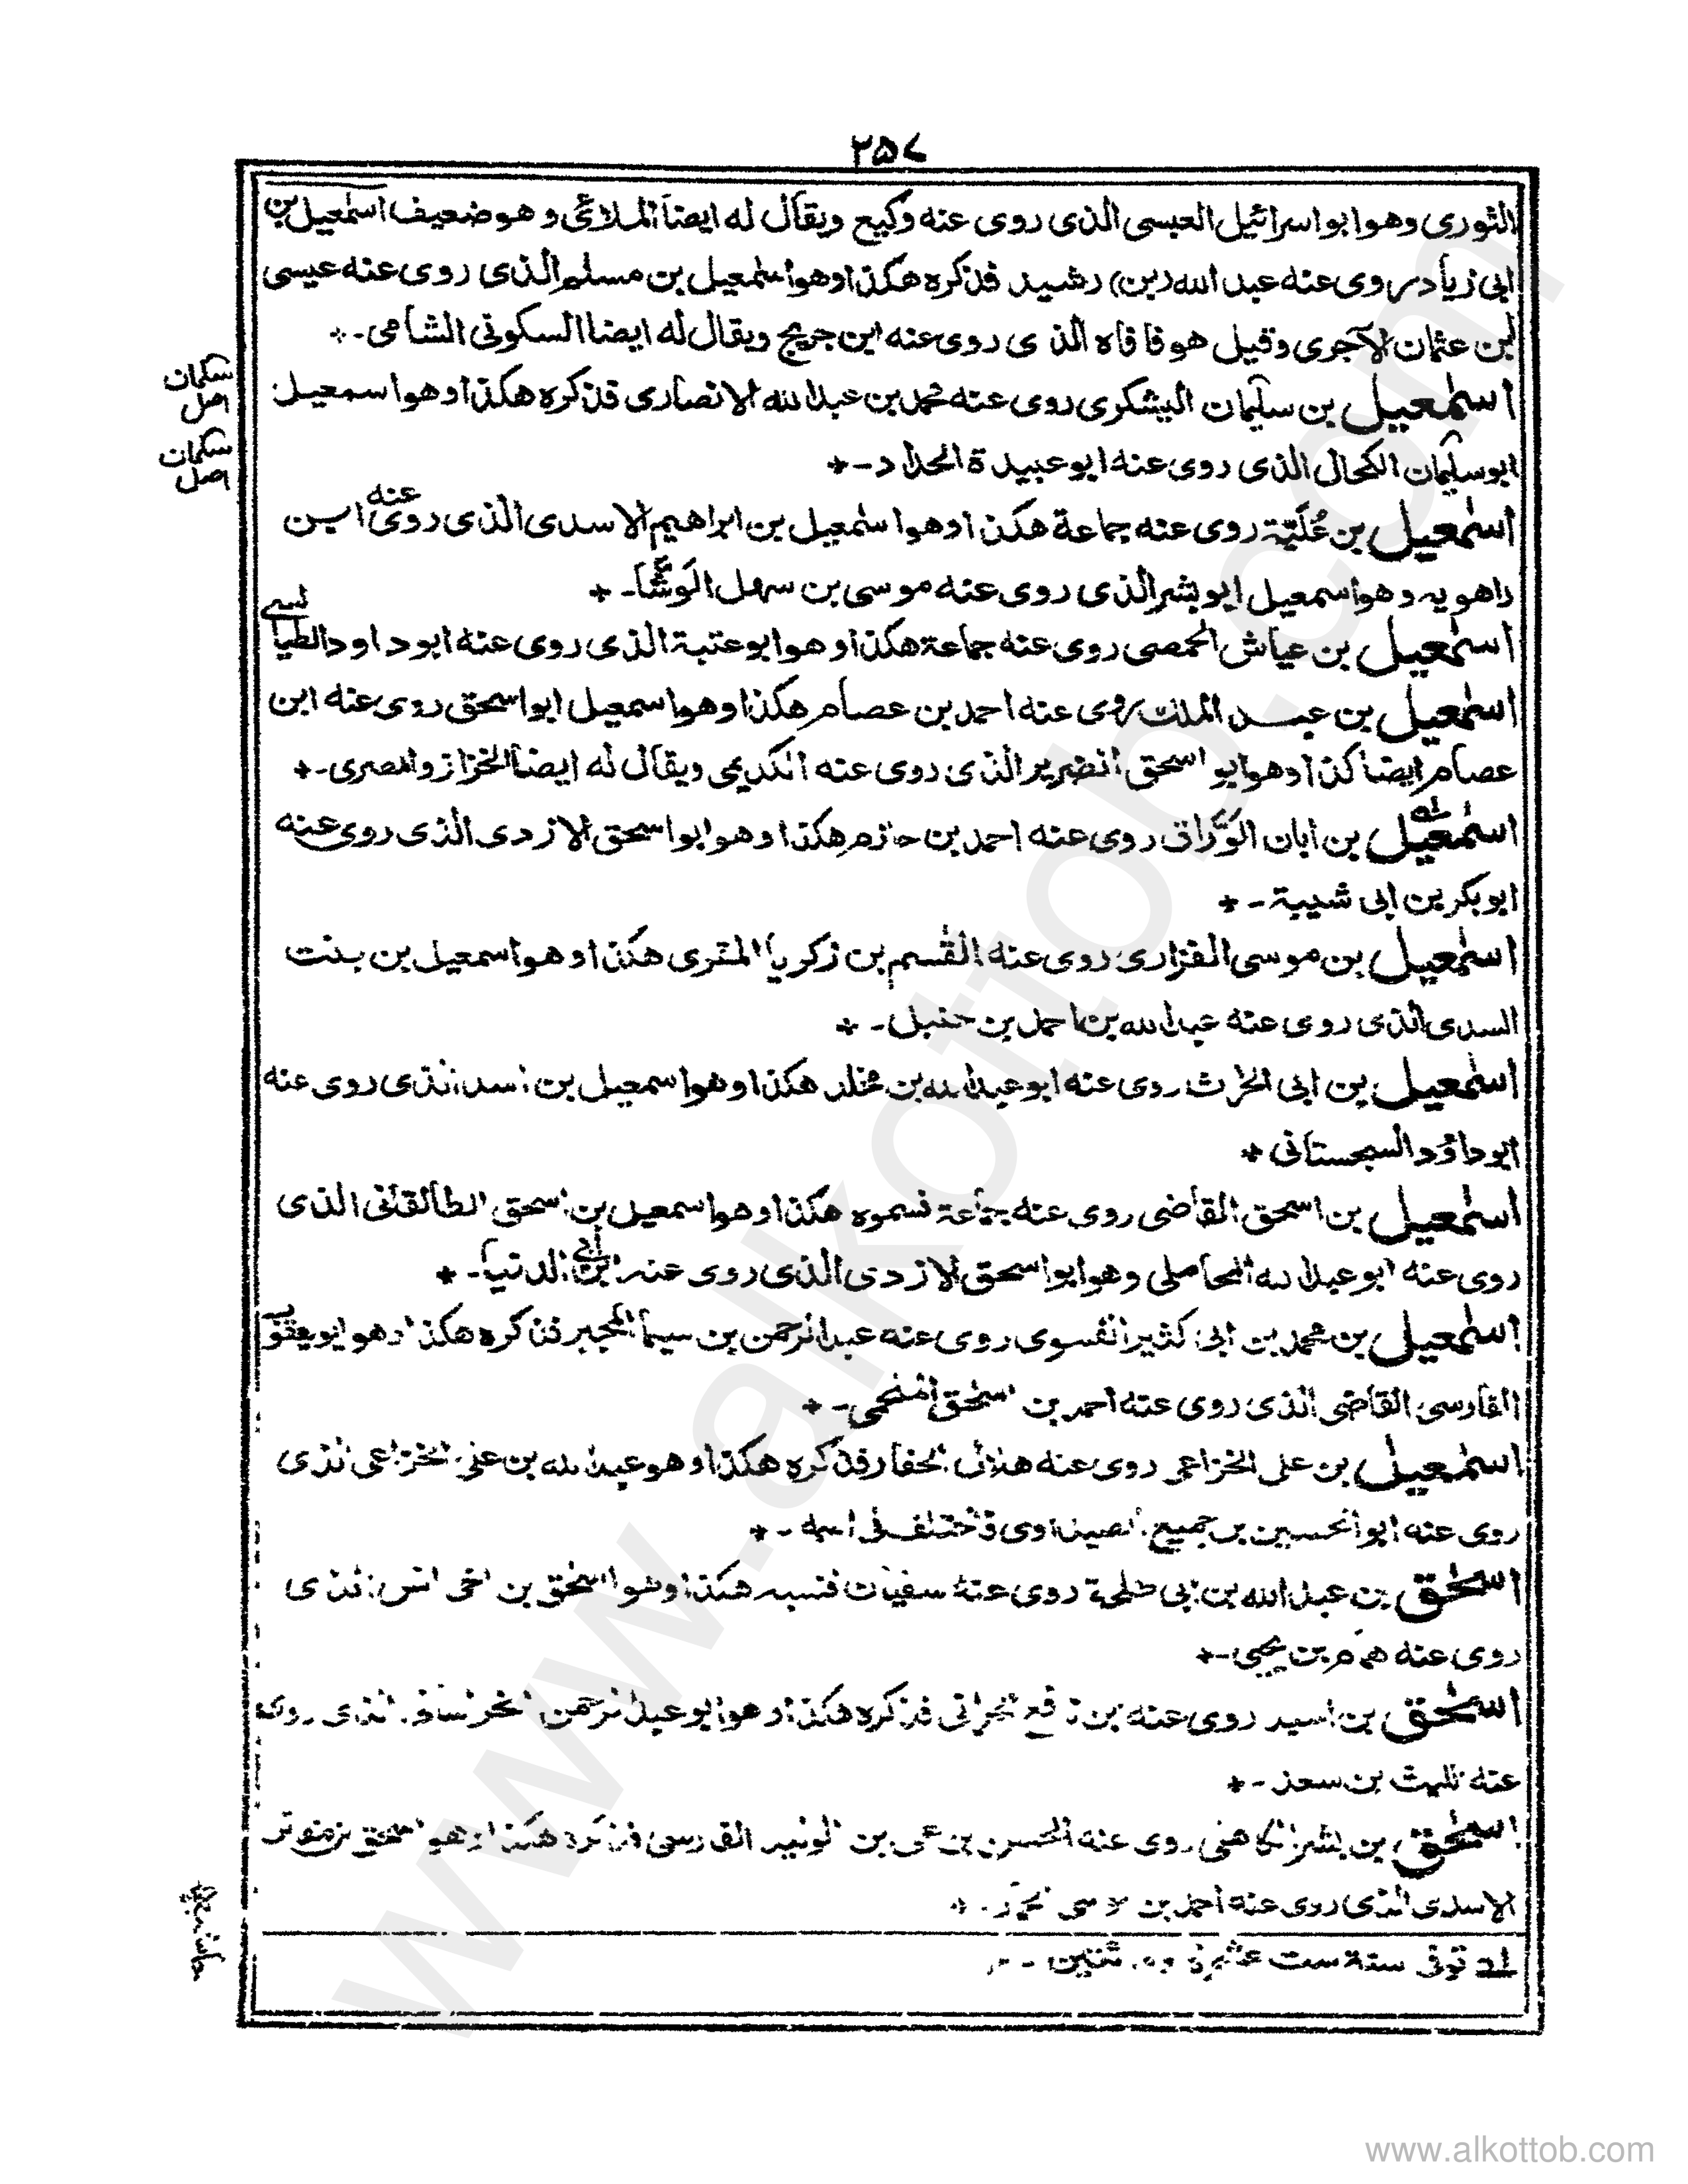 ٢٥٧
الثوری وهوابواسرائیل العبسی الذی روی عنه وکیع ویقال له ایضا الملائی وهوضعیف اسمٰعیل بن
ابی زیاد روی عنه عبد الله (بن) رشید فذکره هکذا وهوا سمٰعیل بن مسلم الذی روی عنه عیسی
ابن عثمان الآجری وقیل هو فافاه الذی روی عنه ابن جریج ویقال له ایضا السکونی الشامی ـ ٭
اسمٰعیل بن سلیمان الیشکری روی عنه محمد بن عبد الله الانصاری فذکره هکذا وهوا سمعیل
سلمان اصل
ابو سلیمان الکحال الذی روی عنه ابو عبیدة الحداد ـ ٭
سلمان اصل
اسمٰعیل بن عُلَیَّة روی عنه جماعة هکذا وهوا سمٰعیل بن ابراهیم الاسدی الذی روی عنه ابن
راهویه وهوا سمعیل ابو بشر الذی روی عنه موسی بن سهل الوَشَّا ـ ٭
اسمٰعیل بن عیاش الحمصی روی عنه جماعة هکذا وهوا بو عتبة الذی روی عنه ابو داود الطیالسی
اسمٰعیل بن عبد الملک روی عنه احمد بن عصام هکذا وهوا سمعیل ابوا سحق روی عنه ابن
عصام ایضا کذا وهوا بو اسحق الضریر الذی روی عنه الکدیمی ویقال له ایضا الخزاز والمصری ـ ٭
اسمٰعیل بن ابان الوَرَّاق روی عنه احمد بن حازم هکذا وهوا بوا سحق الازدی الذی روی عنه
ابو بکر بن ابی شیبة ـ ٭
اسمٰعیل بن موسی الفزاری روی عنه القٰسم بن زکریا المقری هکذا وهوا سمعیل بن بنت
السدی الذی روی عنه عبد الله بن احمد بن حنبل ـ ٭
اسمٰعیل بن ابی الحٰرث روی عنه ابو عبد الله بن مخلد هکذا وهوا سمعیل بن اسد الذی روی عنه
ابو داؤد السجستانی ٭
اسمٰعیل بن اسحق القاضی روی عنه جماعة فسموه هکذا وهوا سمعیل بن اسحق الطالقانی الذی
روی عنه ابو عبد الله المحاملی وهوا بوا سحق الازدی الذی روی عنه ابن ابی الدنیا ـ ٭
اسمٰعیل بن محمد بن ابی کثیر الفسوی روی عنه عبد الرحمن بن سیما المجبر فذکره هکذا وهوا بو یعقوب
الفارسی القاضی الذی روی عنه احمد بن اسحٰق
اسمٰعیل بن علی الخزاعی روی عنه هلال الحفار فذکره هکذا وهو عبد الله بن علی الخزاعی الذی
روی عنه ابو الحسین بن جمیع الصیداوی فاختلف فی اسمه ـ ٭
اسحٰق بن عبد الله بن ابی طلحة روی عنه سفیان فنسبه هکذا وهوا سحٰق بن اخی انس الذی
روی عنه همام بن یحیی ـ ٭
اسحٰق بن اسید روی عنه بن نافع فذکره هکذا وهوا بو عبد الرحمن الخراسانی الذی روی
عنه اللیث بن سعد ـ ٭
اسحٰق بن بشر الکاهلی روی عنه الحسن بن علی بن الولید الفارسی فذکره هکذا وهوا سحق بن
الاسدی الذی روی عنه احمد بن
له توفی سنة ست عشرة ومائتین ـ
www.alkottob.com
www.alkottob.com